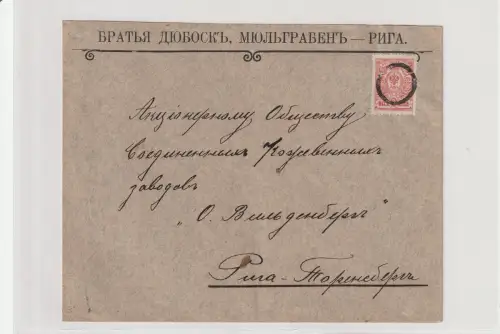 БРАТЬЯ ДЮБОСКЪ, МЮЛЬГРАБЕНЪ — РИГА.
Акціонерному Обществу
Соединенныхъ Кожевенныхъ
заводовъ
„О. Вильденбергъ"
Рига-Торенсбергъ